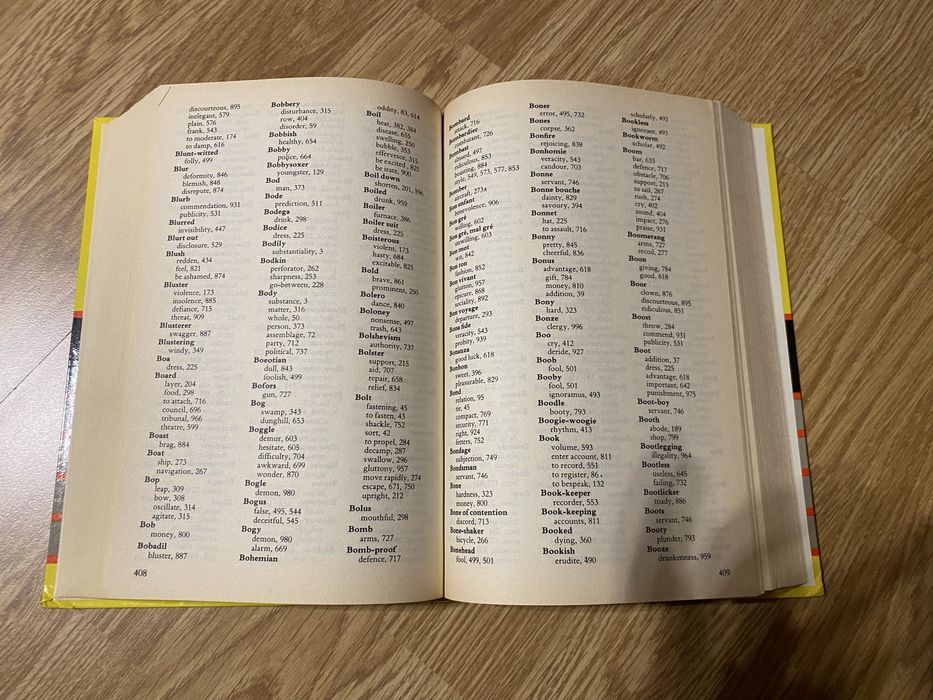 discourteous, 895
inelegant, 579
plain, 576
frank, 543
to moderate, 174
to damp, 616
Blunt-witted
folly, 499
Blur
deformity, 846
blemish, 848
disrepute, 874
Blurb
commendation, 931
publicity, 531
Blurred
invisibility, 447
Blurt out
disclosure, 529
Blush
redden, 434
feel, 821
be ashamed, 874
Bluster
violence, 173
insolence, 885
defiance, 715
threat, 909
Blusterer
swagger, 887
Blustering
windy, 349
Boa
dress, 225
Board
layer, 204
food, 298
to attach, 716
council, 696
tribunal, 966
theatre, 599
Boast
brag, 884
Boat
ship, 273
navigation, 267
Bop
leap, 309
bow, 308
oscillate, 314
agitate, 315
Bob
money, 800
Bobadil
bluster, 887
408
Bobbery
disturbance, 315
row, 404
disorder, 59
Bobbish
healthy, 654
Bobby
police, 664
Bobbysoxer
youngster, 129
Bod
man, 373
Bode
prediction, 511
Bodega
drink, 298
Bodice
dress, 225
Bodily
substantiality, 3
Bodkin
perforator, 262
sharpness, 253
go-between, 228
Body
substance, 3
matter, 316
whole, 50
person, 373
assemblage, 72
party, 712
political, 737
Boeotian
dull, 843
foolish, 499
Bofors
gun, 727
Bog
swamp, 343
dunghill, 653
Boggle
demur, 603
hesitate, 605
difficulty, 704
awkward, 699
wonder, 870
Bogle
demon, 980
Bogus
false, 495, 544
deceitful, 545
Bogy
demon, 980
alarm, 669
Bohemian
oddity, 83, 614
Boil
heat, 382, 384
disease, 655
swelling, 250
bubble, 353
effervesce, 315
be excited, 825
be irate, 900
Boil down
shorten, 201, 596
Boiled
drunk, 959
Boiler
furnace, 386
Boiler suit
dress, 225
Boisterous
violent, 173
hasty, 684
excitable, 825
Bold
brave, 861
prominent, 250
Bolero
dance, 840
Boloney
nonsense, 497
trash, 643
Bolshevism
authority, 737
Bolster
support, 215
aid, 707
repair, 658
relief, 834
Bolt
fastening, 45
to fasten, 43
shackle, 752
sort, 42
to propel, 284
decamp, 287
swallow, 296
gluttony, 957
move rapidly, 274
escape, 671, 750
upright, 212
Bolus
mouthful, 298
Bomb
arms, 727
Bomb-proof
defence, 717
Bombard
attack, 716
Bombardier
combatant, 726
Bombast
absurd, 497
ridiculous, 853
boasting, 884
style, 549, 573, 577, 853
Bomber
aircraft, 273a
Bon enfant
benevolence, 906
Bon gré
willing, 602
Bon gré, mal gré
unwilling, 603
Bon mot
wit, 842
Bon ton
fashion, 852
Bon vivant
glutton, 957
epicure, 868
sociality, 892
Bon voyage
departure, 293
Bona fide
veracity, 543
probity, 939
Bonanza
good luck, 618
Bonbon
sweet, 396
pleasurable, 829
Bond
relation, 95
tie, 45
compact, 769
security, 771
right, 924
fetters, 752
Bondage
subjection, 749
Bondsman
servant, 746
Bone
hardness, 323
money, 800
Bone of contention
discord, 713
Bone-shaker
bicycle, 266
Bonehead
fool, 499, 501
Boner
error, 495, 732
Bones
corpse, 362
Bonfire
rejoicing, 838
Bonhomie
veracity, 543
candour, 703
Bonne
servant, 746
Bonne bouche
dainty, 829
savoury, 394
Bonnet
hat, 225
to assault, 716
Bonny
pretty, 845
cheerful, 836
Bonus
advantage, 618
gift, 784
money, 810
addition, 39
Bony
hard, 323
Bonze
clergy, 996
Boo
cry, 412
deride, 927
Boob
fool, 501
Booby
fool, 501
ignoramus, 493
Boodle
booty, 793
Boogie-woogie
rhythm, 413
Book
volume, 593
enter account, 811
to record, 551
to register, 86
to bespeak, 132
Book-keeper
recorder, 553
Book-keeping
accounts, 811
Booked
dying, 360
Bookish
erudite, 490
scholarly, 492
Bookless
ignorant, 493
Bookworm
scholar, 492
Boom
bar, 633
defence, 717
obstacle, 706
support, 215
to sail, 267
rush, 274
cry, 402
sound, 404
impact, 276
praise, 931
Boomerang
arms, 727
recoil, 277
Boon
giving, 784
good, 618
Boor
clown, 876
discourteous, 895
ridiculous, 851
Boost
throw, 284
commend, 931
publicity, 531
Boot
addition, 37
dress, 225
advantage, 618
important, 642
punishment, 975
Boot-boy
servant, 746
Booth
abode, 189
shop, 799
Bootlegging
illegality, 964
Bootless
useless, 645
failing, 732
Bootlicker
toady, 886
Boots
servant, 746
Booty
plunder, 793
Booze
drunkenness, 959
409